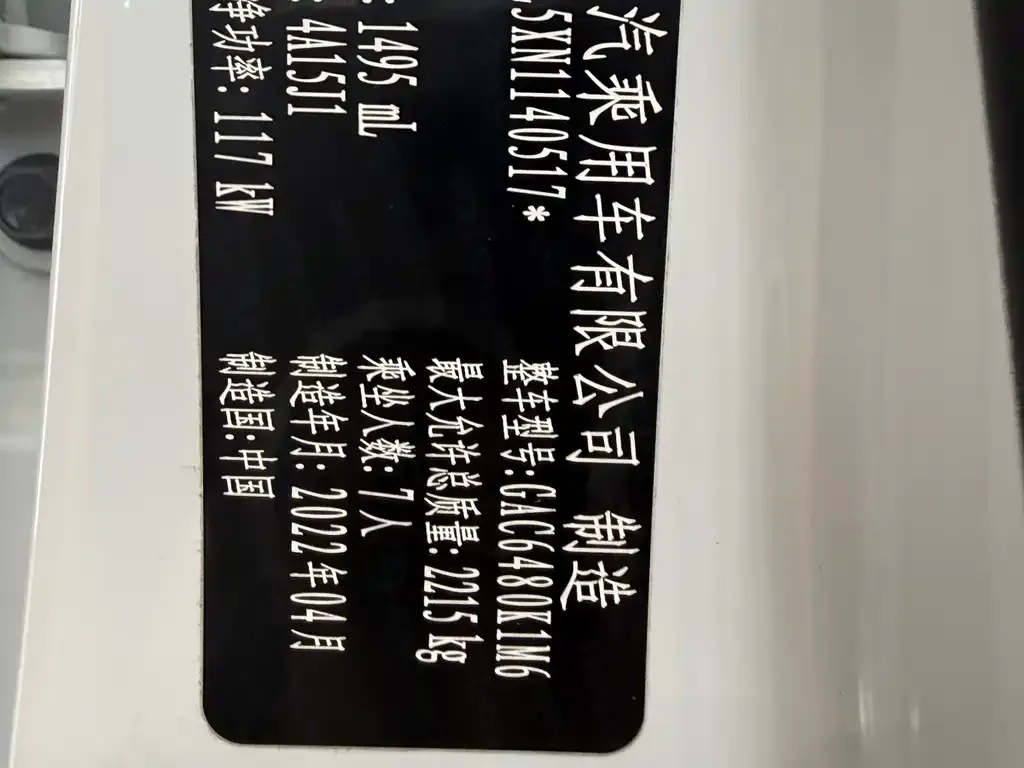 汽乘用车有限公司 制造
5XN1140517*
整车型号:GAC6480K1M6
最大允许总质量:2215kg
: 1495 mL
乘坐人数:7人
: 4A15J1
制造年月:2022年04月
净功率:117 kW
制造国:中国